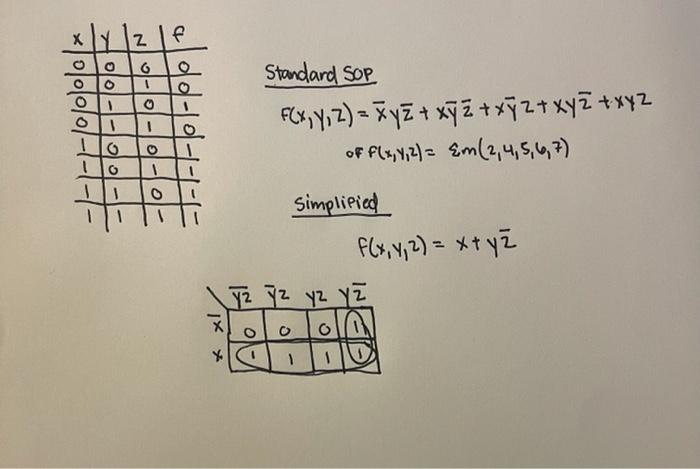 x y z f
0 0 0 0
0 0 1 0
0 1 0 1
0 1 1 0
1 0 0 1
1 0 1 1
1 1 0 1
1 1 1 1
Standard SOP
F(x,y,z) = x̅yz̅ + xy̅z̅ + xy̅z + xyz̅ + xyz
or f(x,y,z) = Σm(2,4,5,6,7)
Simplified
f(x,y,z) = x + yz̅
y̅z̅ y̅z yz yz̅
x̅ 0 0 0 1
x 1 1 1 1